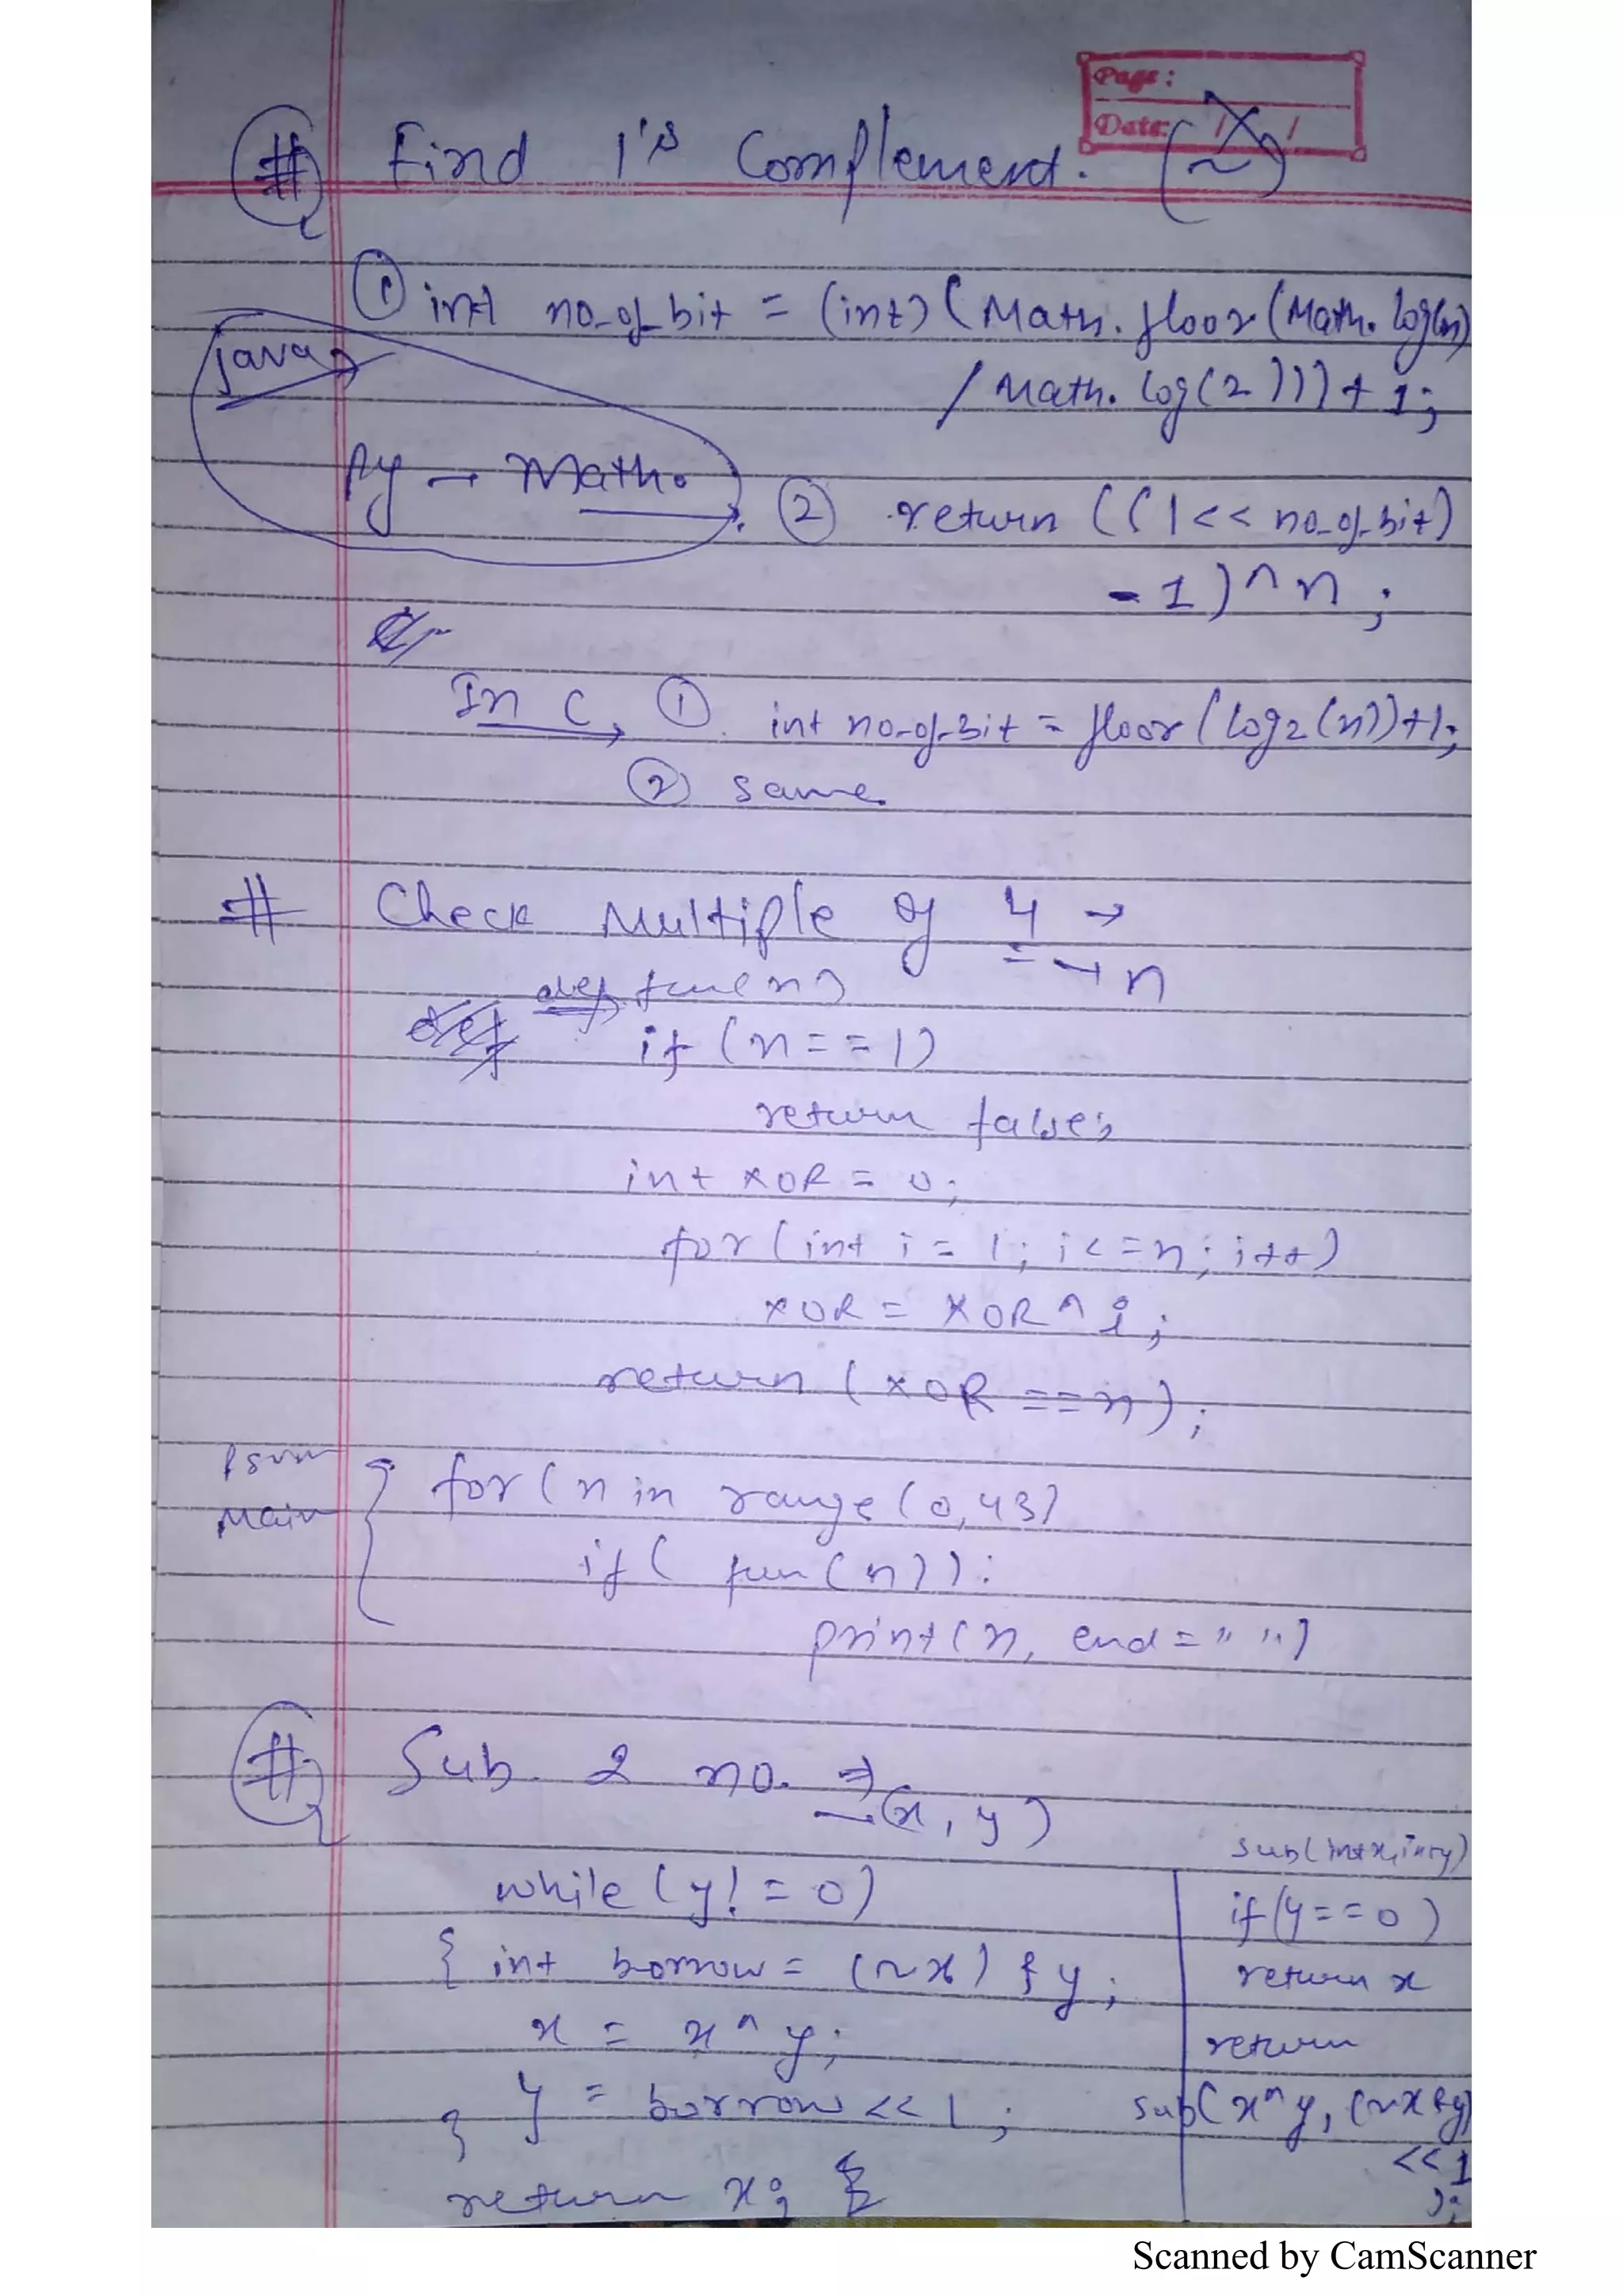 Page:
Date: / /
# Find 1's Complement. (~)
① int no_of_bit = (int) (Math.floor(Math.log(n)
/ Math.log(2))) + 1;
java →
Py → Math.
② return ((1 << no_of_bit)
- 1) ^ n ;
In C, ① int no_of_bit = floor(log2(n))+1;
② same.
# Check Multiple of 4 →
→ n
def fun(n)
if (n==1)
return false;
int XOR = 0;
for (int i = 1; i<=n; i++)
XOR = XOR ^ i;
return (XOR == n);
psvm
Main
for (n in range(0,43)
if ( fun(n)):
print(n, end=" ")
# Sub 2 no. ⇒
→ (x, y)
while (y! = 0)
{ int borrow = (~x) & y;
x = x ^ y;
y = borrow << 1;
}
return x;
sub(int x, int y)
if (y==0)
return x
return
sub(x^y, (~x&y)
<<1
);
Scanned by CamScanner